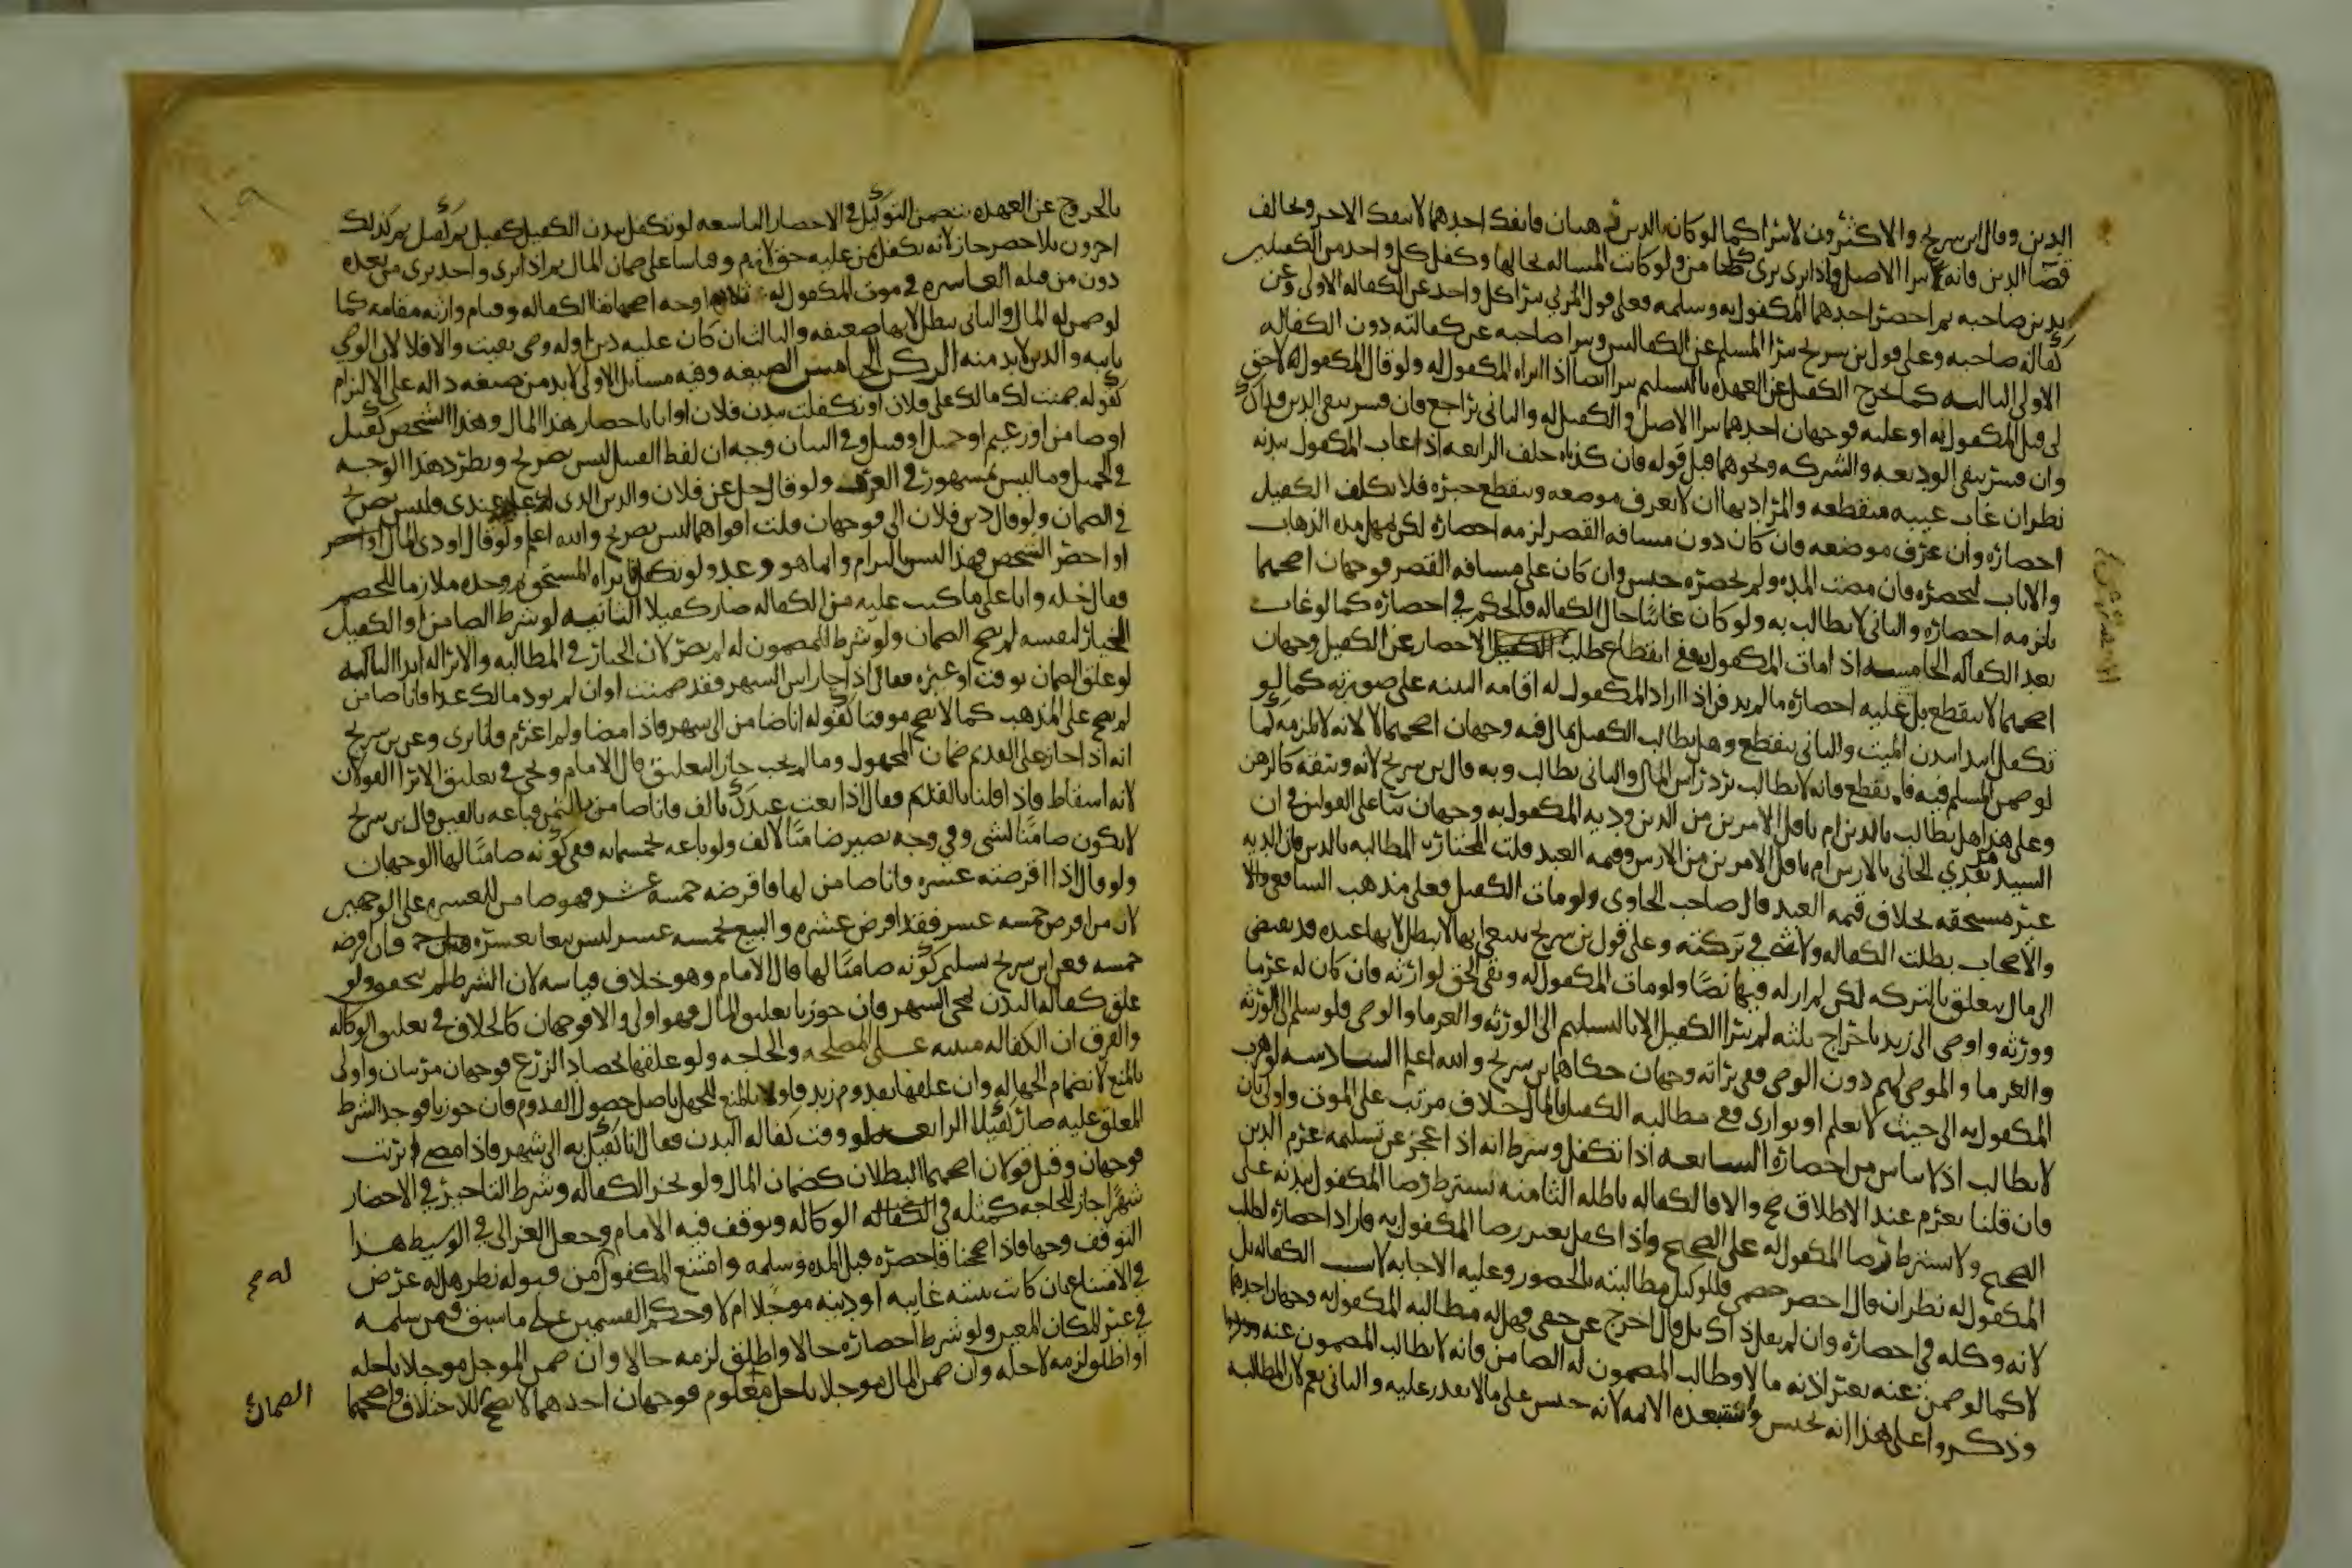 الدين وقال ابن سريج والاكثرون لا يبرا كما لو كان بالدين رهنان فانفك احدهما لا ينفك الاخر ويخالف
قضا الدين فانه يبرا الاصيل واذا برى برى كل ضامن ولو كانت المساله بحالها وكفل كل واحد من الكفيلين
بدن صاحبه ثم احضر احدهما المكفول به وسلمه فعلى قول المزني يبرا كل واحد عن الكفاله الاولى وعن
كفالة صاحبه وعلى قول بن سريج يبرا المسلم عن الكفالتين ويبرا صاحبه عن كفالته دون الكفاله
الاولى الثالثه كما يخرج الكفيل عن العهده بالتسليم يبرا ايضا اذا ابراه المكفول له ولو قال المكفول له لا حق
لي قبل المكفول به او عليه فوجهان احدهما يبرا الاصيل والكفيل والثاني يراجع فان فسر بنفي الدين فذاك
وان فسر بنفي الوديعه والشركه ونحوهما قبل قوله فان كذباه حلف الرابعه اذا غاب المكفول ببدنه
نظر ان غاب غيبه منقطعه والمراد بها ان لا يعرف موضعه وينقطع خبره فلا يكلف الكفيل
احضاره وان عرف موضعه فان كان دون مسافه القصر لزمه احضاره لكن يمهل مده الذهاب
والاياب ليحضره فان مضت المده ولم يحضره حبس وان كان على مسافه القصر فوجهان اصحهما
يلزمه احضاره والثاني لا يطالب به ولو كان غائبا حال الكفاله فالحكم في احضاره كما لو غاب
بعد الكفاله الخامسه اذا مات المكفول به ففي انقطاع طلب الاحضار عن الكفيل وجهان
اصحهما لا ينقطع بل عليه احضاره ما لم يدفن اذا اراد المكفول له اقامه البينه على صورته كما لو
تكفل ابتدا ببدن الميت والثاني ينقطع وهل يطالب الكفيل بمال فيه وجهان اصحهما لا لانه لا يلزمه كما
لو ضمن المسلم فيه فانقطع فانه لا يطالب برد راس المال والثاني يطالب وبه قال بن سريج لانه وثيقه كالرهن
وعلى هذا هل يطالب بالدين ام باقل الامرين من الدين وديه المكفول به وجهان بنا على القولين في ان
السيد يفدي الجاني بالارش ام باقل الامرين من الارش وقيمه العبد قلت المختار المطالبه بالدين فان الديه
غير مستحقه بخلاف قيمه العبد قال صاحب الحاوي ولو مات الكفيل فعلى مذهب الشافعي
والاصحاب بطلت الكفاله ولا شي في تركته وعلى قول بن سريج ينبغي انها لا تبطل لانها عنده قد تفضي
الى مال يتعلق بالتركه لكن لم ار له فيها نصا ولو مات المكفول له وبقي الحق لوارثه فان كان له غرما
وورثه واوصى الى زيد باخراج ثلثه لم يبرا الكفيل الا بالتسليم الى الورثه والغرما والوصي فلو سلم الى الورثه
والغرما والموصى لهم دون الوصي ففي براته وجهان حكاهما بن سريج والله اعلم السادسه لو هرب
المكفول به الى حيث لا يعلم او توارى ففي مطالبه الكفيل بالمال خلاف مرتب على الموت واولى بان
لا يطالب اذ لا ياس من احضاره السابعه اذا تكفل وشرط انه اذا عجز عن تسليمه غرم الدين
فان قلنا يغرم عند الاطلاق صح والا فالكفاله باطله الثامنه يشترط رضا المكفول ببدنه على
الصحيح ولا يشترط رضا المكفول له على الصحيح واذا كفل بغير رضا المكفول به فاراد احضاره لطلب
المكفول له نظر ان قال احضر خصمي فللوكيل مطالبته بالحضور وعليه الاجابه لا بسبب الكفاله بل
لانه وكله في احضاره وان لم يقل ذاك بل قال اخرج عن حقي فهل له مطالبه المكفول به وجهان احدهما
لا كما لو ضمن عنه بغير اذنه مالا وطالب المضمون له الضامن فانه لا يطالب المضمون عنه
وذكروا على هذا انه يحبس واستبعده الائمه لانه حبس على ما لا يقدر عليه والثاني نعم لان المطالبه
بالخروج عن العهده تتضمن التوكيل في الاحضار التاسعه لو تكفل ببدن الكفيل كفيل ثم كفيل ثم كذلك
اخرون بلا حصر جاز لانه تكفل بمن عليه حق لازم وقياسا على ضمان المال ثم اذا برى واحد برى من بعده
دون من قبله العاشره في موت المكفول له ثلاثه اوجه اصحها بقا الكفاله وقيام وارثه مقامه كما
لو ضمن له المال والثاني تبطل لانها ضعيفه والثالث ان كان عليه دين او له وصي بقيت والا فلا لان الوصي
نايبه والدين لا بد منه الركن الخامس الصيغه وفيه مسائل الاولى لا بد من صيغه داله على الالتزام
كقوله ضمنت لك مالك على فلان او تكفلت ببدن فلان او انا باحضار هذا المال وهذا الشخص كفيل
او ضامن او زعيم او حميل او قبيل وفي البيان وجه ان لفظ القبيل ليس بصريح ويطرد هذا الوجه
في الحميل وما ليس بمشهور في العرف ولو قال خل عن فلان والدين الذي لك عليه عندي فليس بصريح
في الضمان ولو قال دين فلان الي فوجهان قلت اقواهما ليس بصريح والله اعلم ولو قال اودي المال او احضر
او احضر الشخص فهذا ليس بالتزام وانما هو وعد ولو تكفل فابراه المستحق ثم وجده ملازما للخصم
فقال خله وانا على ما كنت عليه من الكفاله صار كفيلا الثانيه لو شرط الضامن او الكفيل
الخيار لنفسه لم يصح الضمان ولو شرط للمضمون له لم يضر لان الخيار في المطالبه والابرا له ابدا الثالثه
لو علق الضمان بوقت او غيره فقال اذا جا راس الشهر فقد ضمنت او ان لم يود مالك غدا فانا ضامن
لم يصح على المذهب كما لا يصح موقتا كقوله انا ضامن الى شهر فاذا مضا ولم اغرم فانا برى وعن بن سريج
انه اذا جاز على القديم ضمان المجهول وما لم يجب جاز التعليق قال الامام ويجي في تعليق الابرا القولان
لانه اسقاط فاذا قلنا بالقديم فقال اذا بعت عبدك بالف فانا ضامن بالثمن فباعه بالفين قال بن سريج
لا يكون ضامنا لشي وفي وجه يصير ضامنا لالف ولو باعه بخمسمايه ففي كونه ضامنا لها الوجهان
ولو قال اذا اقرضته عشره فانا ضامن لها فاقرضه خمسه عشر فهو ضامن للعشره على الوجهين
لان من اقرض خمسه عشر فقد اقرض عشره والبيع بخمسه عشر ليس بيعا بعشره وان اقرضه
خمسه فعن ابن سريج تسليم كونه ضامنا لها قال الامام وهو خلاف قياسه لان الشرط لم يتحقق ولو
علق كفاله البدن بمجي الشهر فان جوزنا تعليق المال فهو اولى والا فوجهان كالخلاف في تعليق الوكاله
والفرق ان الكفاله مبنيه على المصلحه والحاجه ولو علقها بحصاد الزرع فوجهان مرتبان واولى
بالمنع لانضمام الجهاله وان علقها بقدوم زيد فاولى بالمنع للجهل باصل حصول القدوم فان جوزنا فوجد الشرط
المعلق عليه صار كفيلا الرابعه لو وقت كفاله البدن فقال انا كفيل به الى شهر فاذا مضى برئت
فوجهان وقيل قولان اصحهما البطلان كضمان المال ولو نجز الكفاله وشرط التاخير في الاحضار
شهرا جاز للحاجه كمثله في الوكاله وتوقف فيه الامام وجعل الغزالي في الوسيط هذا
التوقف وجها فاذا صححنا فاحضره قبل المده وسلمه وامتنع المكفول من قبوله نظر هل له غرض
له صح
في الامتناع بان كانت بينته غايبه او دينه موجلا ام لا وحكم القسمين على ما سبق فيمن سلمه
في غير المكان المعين ولو شرط احضاره حالا او اطلق لزمه حالا وان ضمن الموجل موجلا باجله
او اطلق لزمه لاجله وان ضمن المال موجلا باجل معلوم فوجهان احدهما لا يصح للاختلاف واصحهما
الضمان